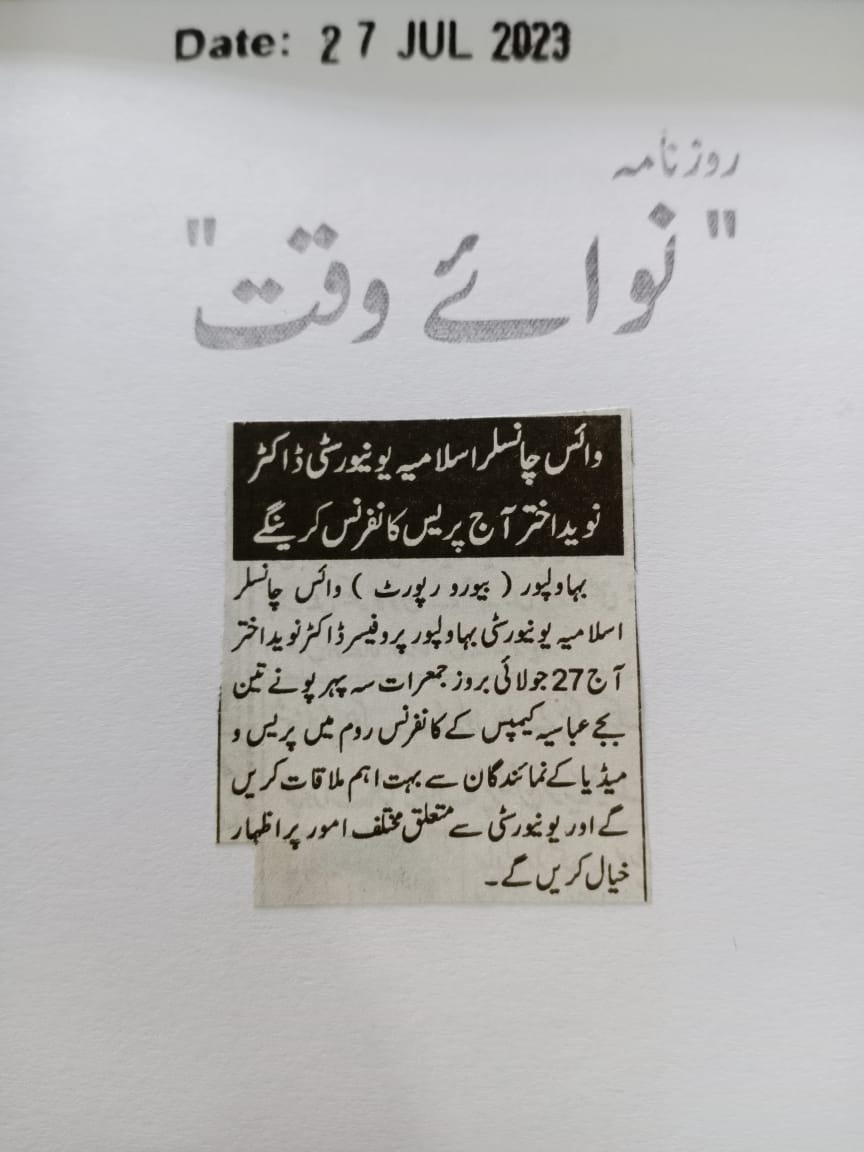 Date: 27 JUL 2023
روزنامہ
"نوائے وقت"
وائس چانسلر اسلامیہ یونیورسٹی ڈاکٹر
نوید اختر آج پریس کانفرنس کرینگے
بہاولپور ( بیورو رپورٹ ) وائس چانسلر
اسلامیہ یونیورسٹی بہاولپور پروفیسر ڈاکٹر نوید اختر
آج 27 جولائی بروز جمعرات سہ پہر پونے تین
بجے عباسیہ کیمپس کے کانفرنس روم میں پریس و
میڈیا کے نمائندگان سے بہت اہم ملاقات کریں
گے اور یونیورسٹی سے متعلق مختلف امور پر اظہار
خیال کریں گے۔